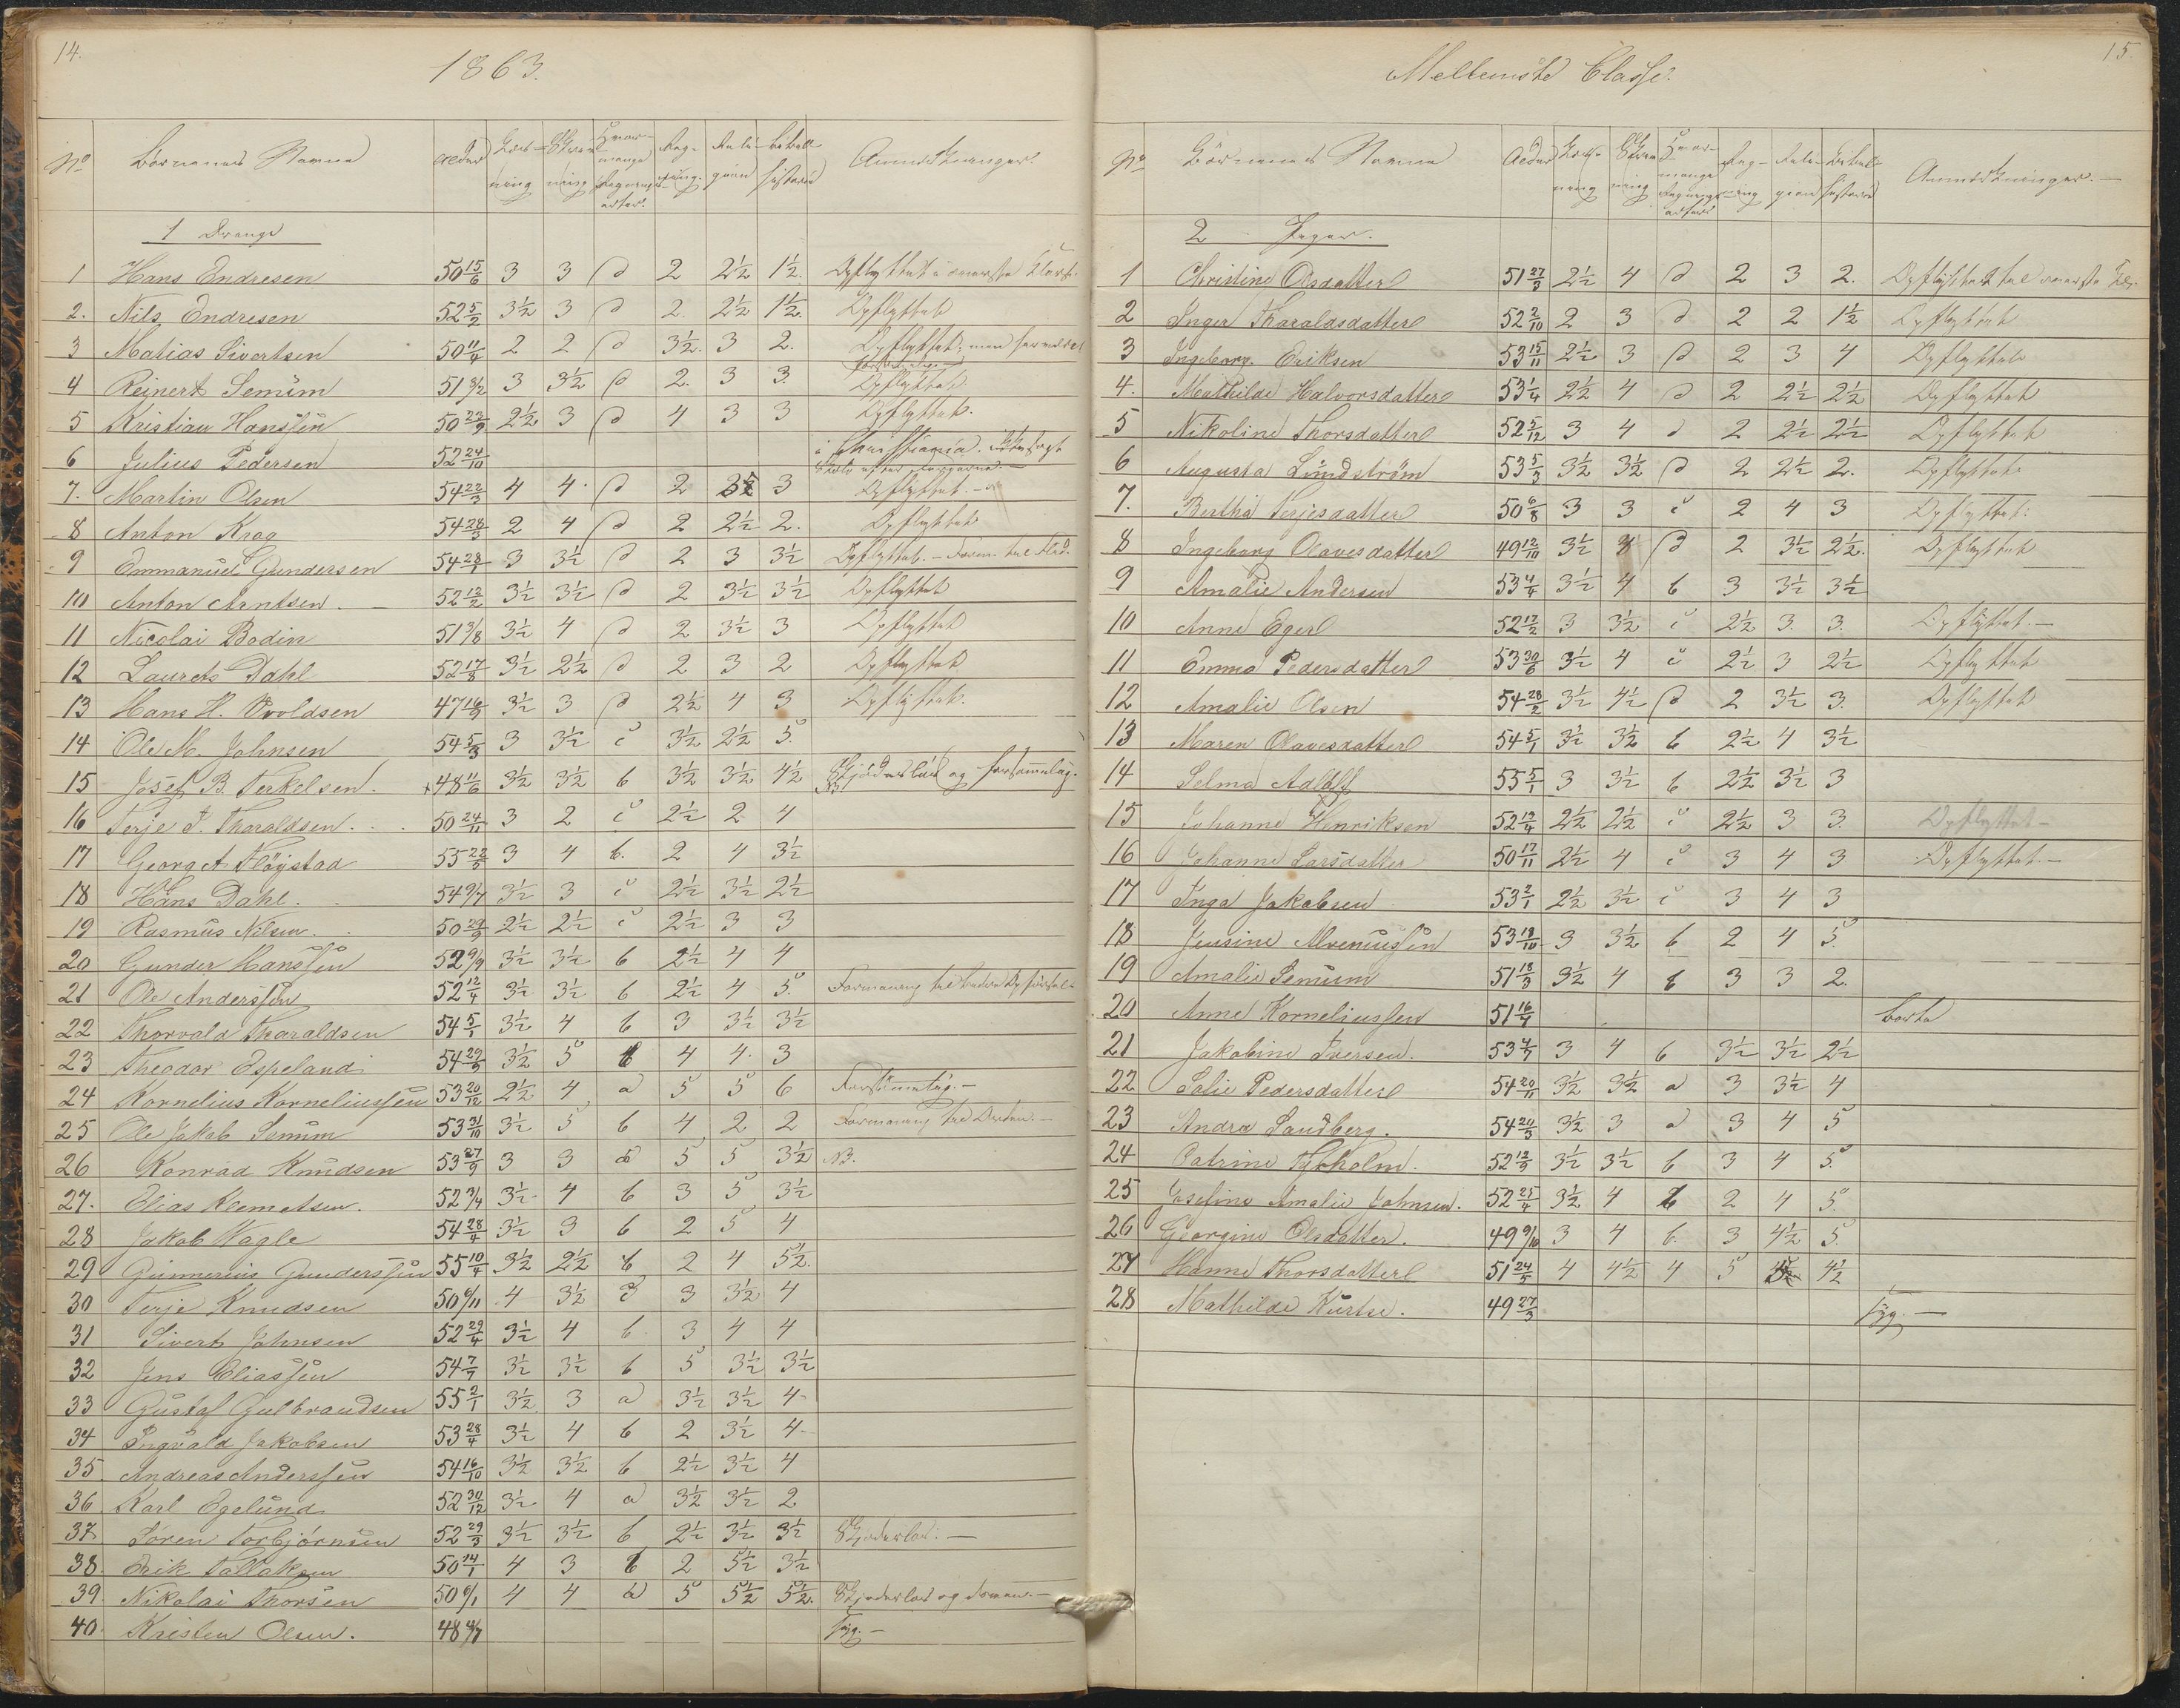 14.
1863.
No Børnenes Navne Alder Læsning Skrivning Hvormange Regningsarter Regning Religion Bibelhistorie Anmærkninger.
1 Drenge
1 Hans Endresen 50 15/6 3 3 d 2 2½ 1½. Opflyttet i øverste Klasse.
2. Nils Endresen 52 5/2 3½ 3 d 2. 2½ 1½. Opflyttet
3 Matias Sivertsen 50 11/4 2 2 d 3½. 3 2. Opflyttet; men
4 Reinert Senum 51 3/12 3 3½ d 2. 3 3. Opflyttet
5 Kristian Hanssen 50 23/9 2½ 3 d 4 3 3 Opflyttet.
6 Julius Pedersen 52 24/10 i Christiania.
7. Martin Olsen 54 22/3 4 4. d 2 3½ 3 Opflyttet.
8 Anton Krag 54 28/3 2 4 d 2 2½ 2. Opflyttet
9 Emmanuel Gundersen 54 28/1 3 3½ d 2 3 3½ Opflyttet. - Form. til Flid.
10 Anton Arntsen. 52 12/2 3½ 3½ d 2 3½ 3½ Opflyttet
11 Nicolai Bodin 51 3/8 3½ 4 d 2 3½ 3 Opflyttet
12 Laurets Dahl 52 17/8 3½ 2½ d 2 3 2 Opflyttet
13 Hans H. Ovoldsen 47 16/9 3½ 3 d 2½ 4 3 Opflyttet.
14 Ole M. Johnsen 54 5/3 3 3½ c 3½ 2½ 5.
15 Josef B. Terkelsen. +48 11/6 3½ 3½ b 3½ 3½ 4½ Skjødesløs og forsømmelig.
16 Terje T. Tharaldsen. 50 24/11 3 2 c 2½ 2 4
17 Georg A Fløystad 55 22/5 3 4 b. 2 4 3½
18 Hans Dahl. 54 9/7 3½ 3 c 2½ 3½ 2½
19 Rasmus Nilsen. 50 29/9 2½ 2½ c 2½ 3 3
20 Gunder Hanssen 52 9/9 3½ 3½ b 2½ 4 4
21 Ole Anderssen 52 12/4 3½ 3½ b 2½ 4 5. Formaning til bedre Opførsel
22 Thorvald Tharaldsen 54 5/1 3½ 4 b 3 3½ 3½
23 Theodor Espeland 54 29/9 3½ 5 b 4 4. 3
24 Kornelius Korneliussen 53 20/12 2½ 4 a 5 5 6 Forsømmelig.-
25 Ole Jakob Senum 53 31/10 3½ 5 b 4 2 2 Formaning til Orden.-
26 Konrad Knudsen 53 27/9 3 3 b 5 5 3½ NB.
27. Elias Klemetsen. 52 3/4 3½ 4 b 3 5 3½
28 Jakob Wagle 54 28/4 3½ 3 b 2 5 4
29 Gunnerius Gunderssen 55 10/4 3½ 2½ b 2 4 5½.
30 Terje Knudsen 50 6/11 4 3½ c 3 3½ 4
31 Sivert Johnsen 52 29/4 3½ 4 b 3 4 4
32 Jens Eliassen 54 7/7 3½ 3½ b 5 3½ 3½
33 Gustaf Gulbrandsen 55 2/1 3½ 3 a 3½ 3½ 4
34 Ingvald Jakobsen 53 28/4 3½ 4 b 2 3½ 4
35. Andreas Anderssen 54 16/10 3½ 3½ b 2½ 3½ 4
36. Karl Egelund 52 30/12 3½ 4 a 3½ 3½ 2
37. Søren Torbjørnsen 52 29/3 3½ 3½ b 2½ 3½ 3½ Skjødesløs. -
38. Erik Tallaksen 50 14/1 4 3 b 2 5½ 3½
39. Nikolai Thorsen 50 6/1 4 4 a 5 5½ 5½. Skjødesløs og doven.-
40. Kristen Olsen. 48 4/7 Syg.-
15.
Mellemste Classe.
No Børnenes Navne Alder Læsning Skrivning Hvormange Regningsarter Regning Religion Bibelhistorie Anmærkninger.-
2 Piger.
1 Christine Olsdatter 51 27/3 2½ 4 d 2 3 2. Opflyttet til øverste Kl.
2 Inger Tharaldsdatter 52 2/10 2 3 d 2 2 1½ Opflyttet
3 Ingeborg Eriksen 53 15/11 2½ 3 d 2 3 4 Opflyttet
4. Mathilde Halvorsdatter 53 1/4 2½ 4 d 2 2½ 2½ Opflyttet
5 Nikoline Thorsdatter 52 5/12 3 4 d 2 2½ 2½ Opflyttet
6 Augusta Lundstrøm 53 5/3 3½ 3½ d 2 2½ 2. Opflyttet
7. Bertha Terjesdatter 50 6/8 3 3 c 2 4 3 Opflyttet.
8 Ingeborg Olavesdatter 49 12/10 3½ 4 d 2 3½ 2½. Opflyttet
9 Amalie Andersen 53 4/4 3½ 4 b 3 3½ 3½
10 Anne Eger 52 17/2 3 3½ c 2½ 3. 3. Opflyttet.-
11 Emma Pedersdatter 53 30/6 3½ 4 c 2½ 3 2½ Opflyttet
12 Amalie Olsen 54 28/2 3½ 4½ d 2 3½ 3. Opflyttet
13 Maren Olavesdatter 54 5/1 3½ 3½ b 2½ 4 3½
14 Selma Adolff 55 5/1 3 3½ b 2½ 3½ 3
15 Johanne Henriksen 52 19/4 2½ 2½ c 2½ 3 3. Opflyttet-
16 Johanne Larsdatter 50 17/11 2½ 4 c 3 4 3 Opflyttet.-
17 Inga Jakobsen 53 2/1 2½ 3½ c 3 4 3
18 Jensine Alveniussen 53 18/10 3 3½ b 2 4 5.
19 Amalie Senum 51 18/3 3½ 4 b 3 3 2.
20 Anne Korneliussen 51 16/7 borte
21 Jakobine Iversen. 53 4/7 3 4 b 3½ 3½ 2½
22 Salie Pedersdatter 54 20/11 3½ 3½ a 3 3½ 4
23 Andra Sandberg. 54 20/5 3½ 3 a 3 4 5
24 Catrine Nybholm. 52 12/9 3½ 3½ b 3 4 5.
25 Josefine Amalie Johnsen. 52 25/4 3½ 4 b 2 4 5.
26 Georgine Olsdatter. 49 9/10 3 4 b. 3 4½ 5
27 Hanne Thorsdatter 51 24/5 4 4½ 4 5 4½
28 Mathilde Kurtse. 49 27/3 Syg.-